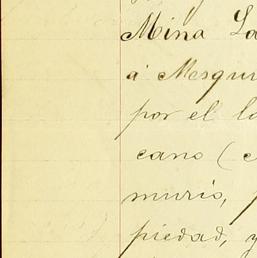 Mina La
á Mesqui
por el la
cano (
murio,
piedad, y